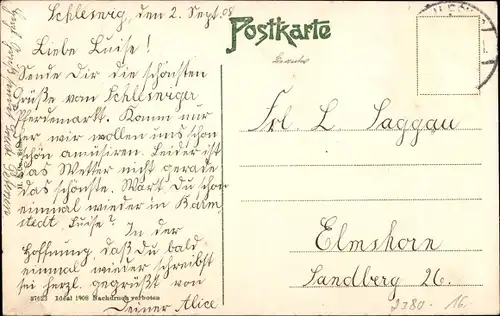 Schleswig, den 2. Sept. 08
Liebe Luise!
Sende Dir die schönsten
Grüße vom Schleswiger
Pferdemarkt. Komm nur
her wir wollen uns schon
schön amüsiren. Leider ist
das Wetter nicht gerade
das schönste. Warst Du schon
einmal wieder in Barm-
stedt, Luise? In der
Hoffnung, daß Du bald
einmal wieder schreibst
sei herzl. gegrüßt von
Deiner Alice
37623 Ideal 1908 Nachdruck verboten
Postkarte
Frl. L. Saggau
Elmshorn
Sandberg 26.
2380 16.